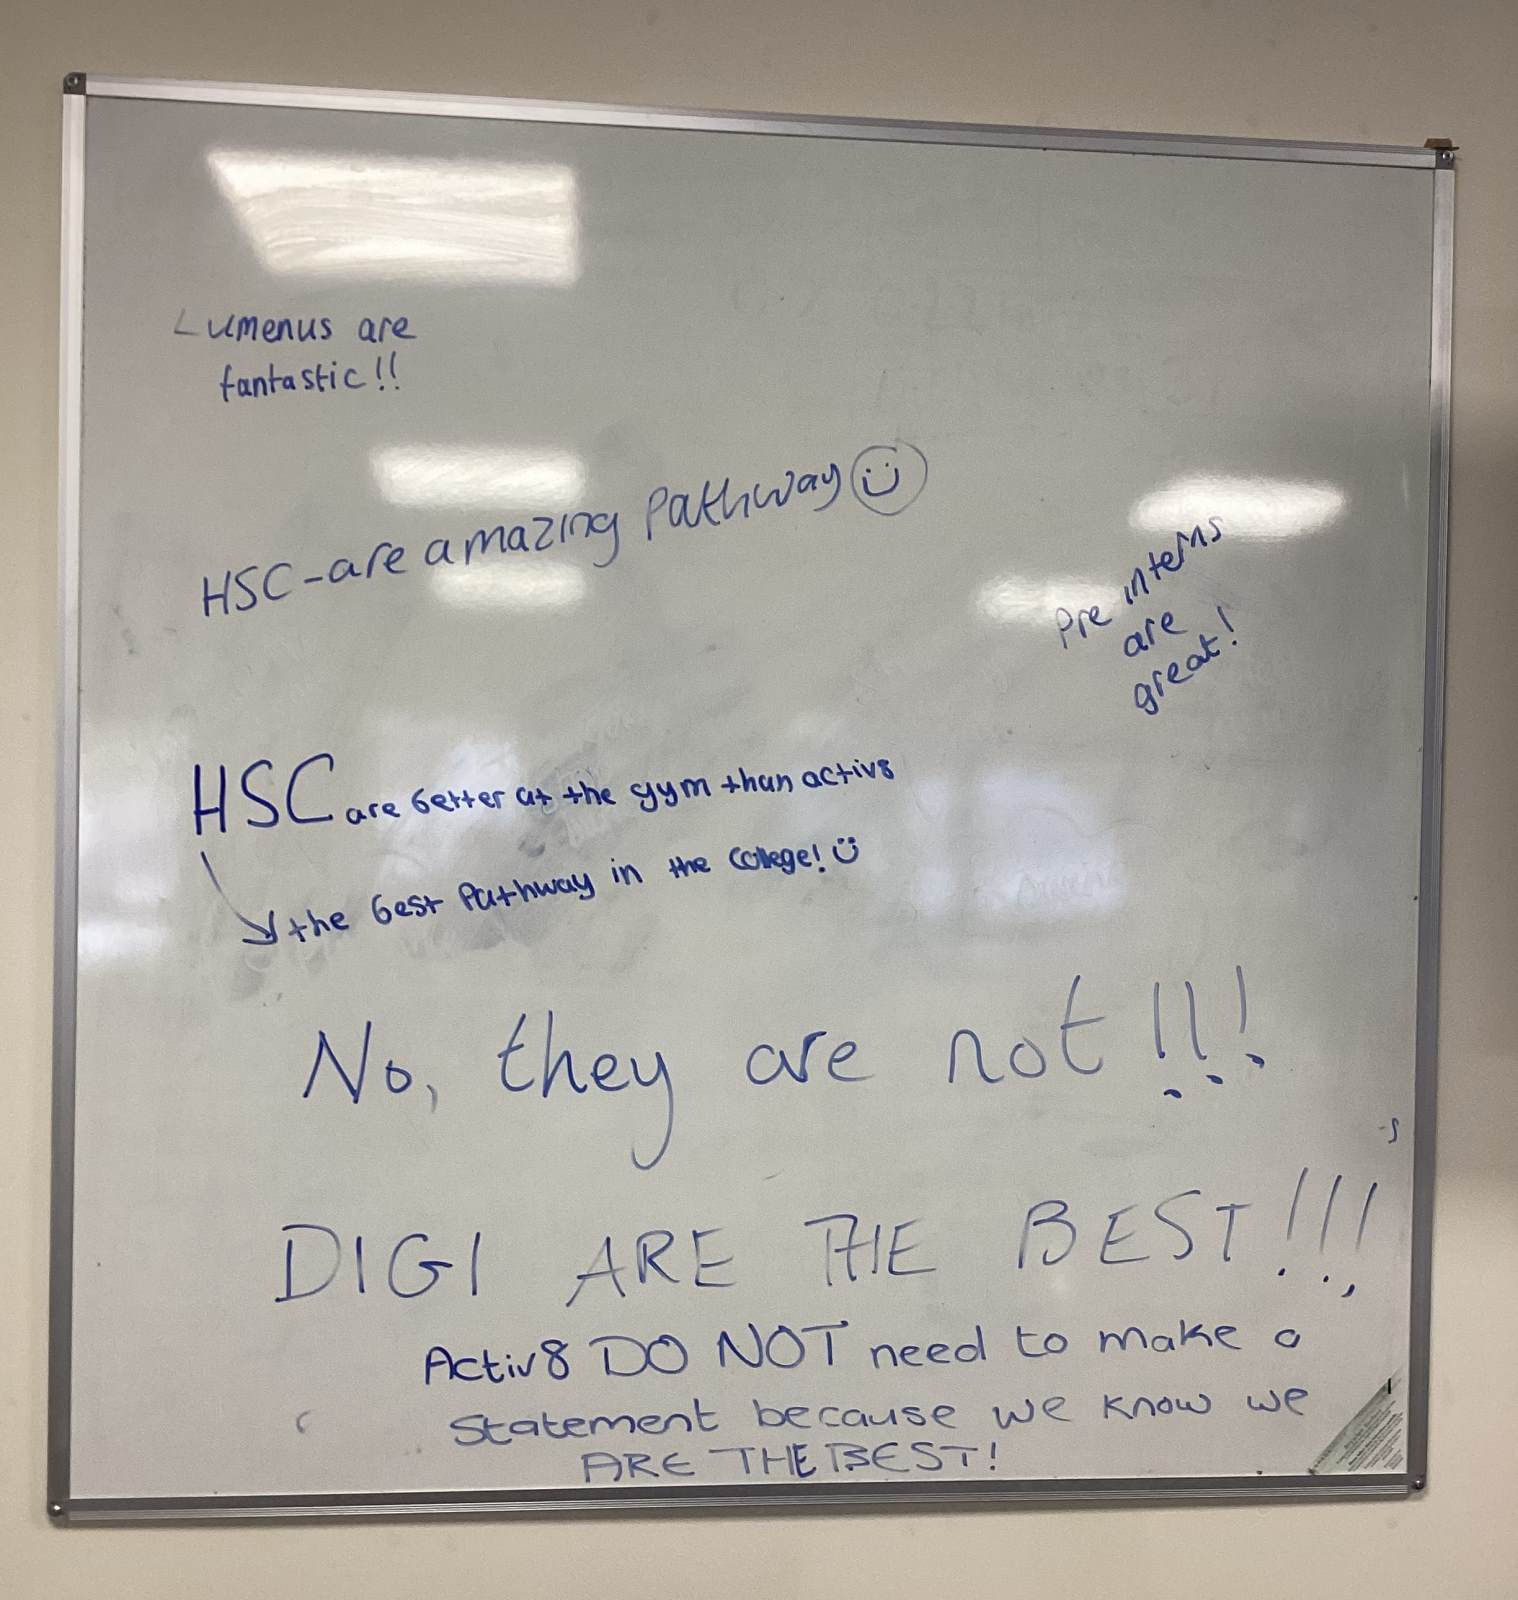 Lumenus are
fantastic!!
HSC-are amazing Pathway
Pre interns
are
great!
HSC are better at the gym than activ8
the best Pathway in the College!
No, they are not!!!
DIGI ARE THE BEST!!!
Activ8 DO NOT need to make a
statement because we know we
ARE THE BEST!